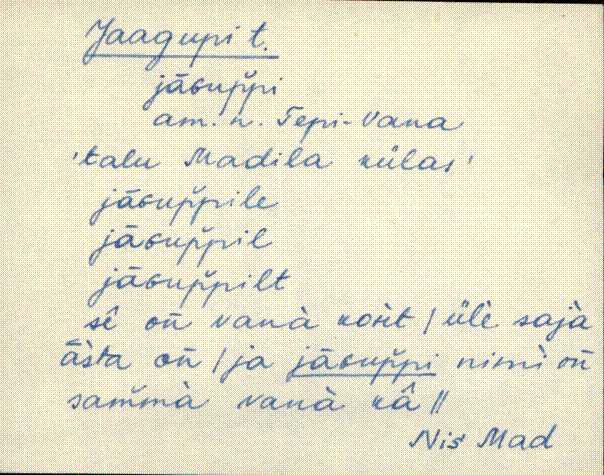 Jaagupi t.
jāɢup̆pi
am. n. Tepi-Vana
'talu Madila külas'
jāɢup̆pile
jāɢup̆pil
jāɢup̆pilt
sê on̄ vanà kòit / ülè sajà
āsta on̄ / ja jāɢup̆pi nimì on̄
sam̆mà vanà kâ ||
Nis Mad